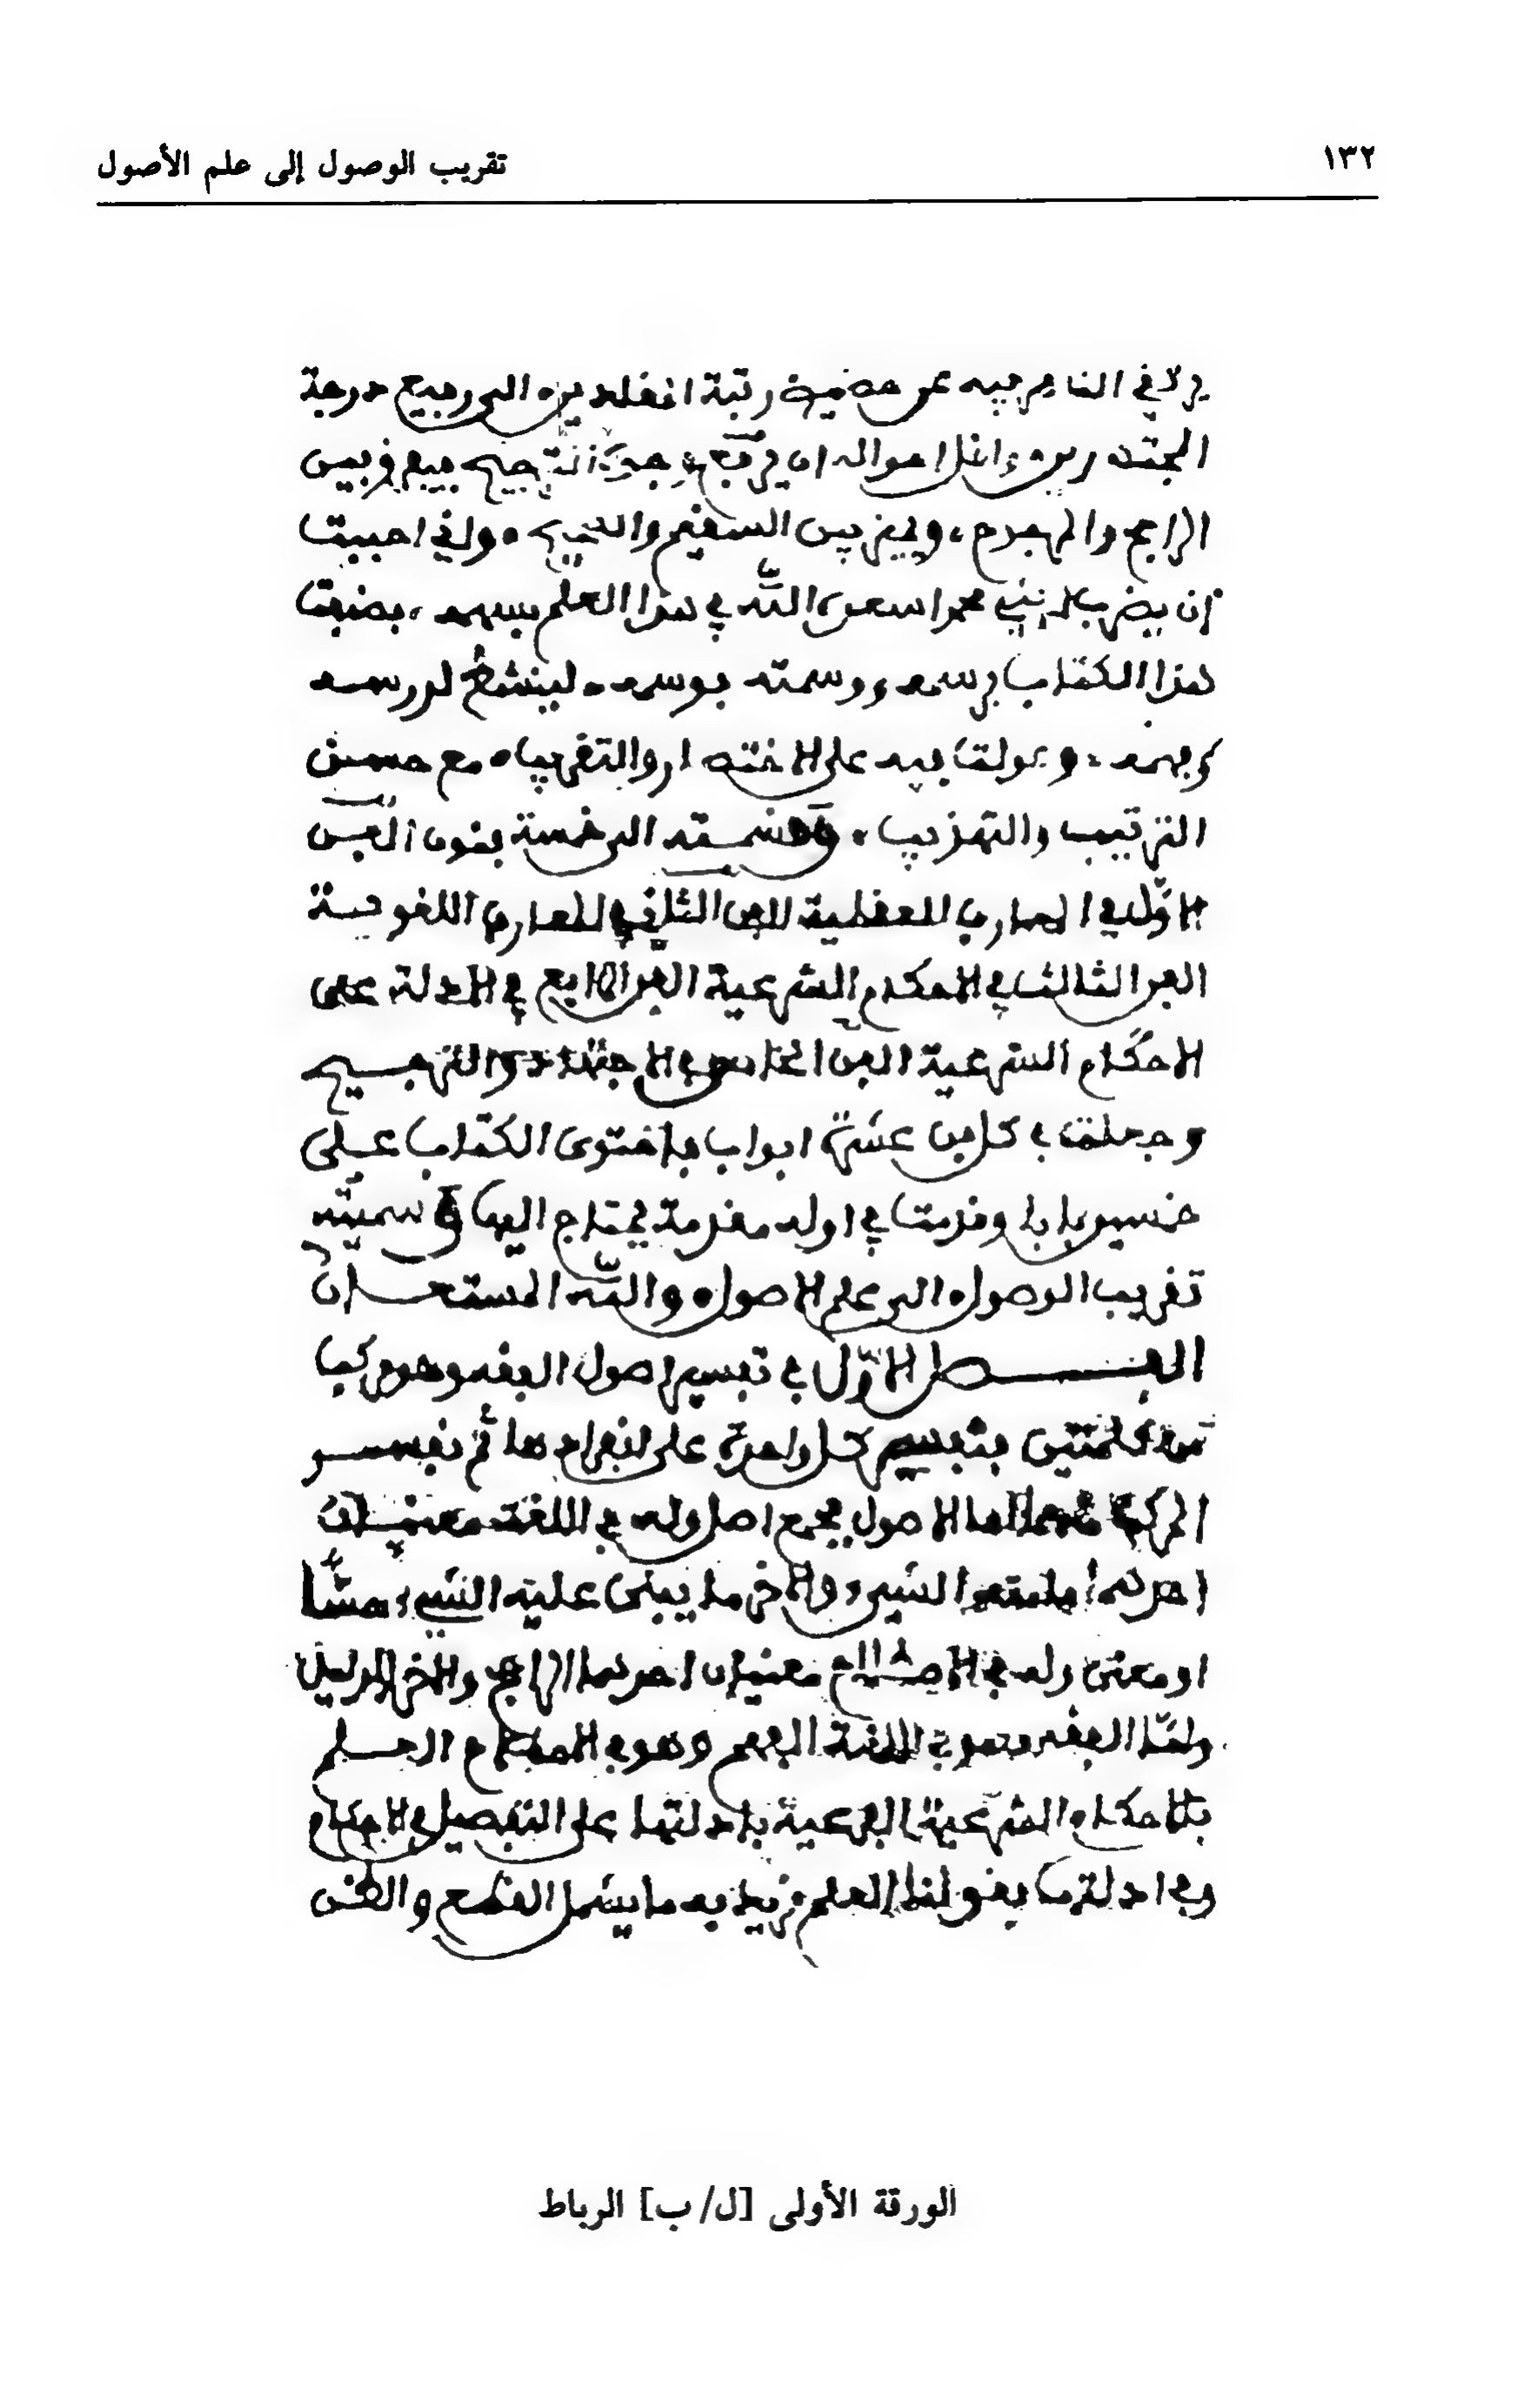 ١٣٢
تقريب الوصول إلى علم الأصول
يرتقي الناظر فيه عن حضيض رتبة المقلدين الى رفيع درجة
المجتهدين واقل احواله ان يرجح جهة الترجيح فيفرق بين
الراجح والمرجوح، ويميز بين السقيم والصحيح، واني احببت
ان يضرب ابني محمد اسعده الله في هذا العلم بسهم، فصنفت
هذا الكتاب برسمه، ووسمته بوسمه، لينشط لدرسه
وفهمه، وعولت فيه على الاختصار والتقريب، مع حسن
الترتيب والتهذيب، وقسمته الى خمسة فنون الفن
الاول في المعارف العقلية الفن الثاني في المعارف اللغوية
الفن الثالث في الاحكام الشرعية الفن الرابع في الادلة على
الاحكام الشرعية الفن الخامس في الاجتهاد والترجيح
وجعلت في كل فن عشرة ابواب فاحتوى الكتاب على
خمسين بابا وقدمت في اوله مقدمة يحتاج اليها وسميته
تقريب الوصول الى علم الاصول والله المستعان
الفصل الاول في تفسير اصول الفقه وهو مركب
من كلمتين فنفسر كل واحدة على انفرادها ثم نفسر
المركب اما الاصول فجمع اصل وله في اللغة معنيان
احدهما ما منه الشيء والاخر ما يبنى عليه الشيء حسا
او معنى وله في الاصطلاح معنيان احدهما الراجح والاخر الدليل
واما الفقه فهو في اللغة الفهم وهو في الاصطلاح العلم
بالاحكام الشرعية الفرعية بادلتها على التفصيل في الاحكام
وفي ادلتها فقولنا العلم نريد به ما يشمل القطع والظن
الورقة الأولى [ل/ب] الرباط